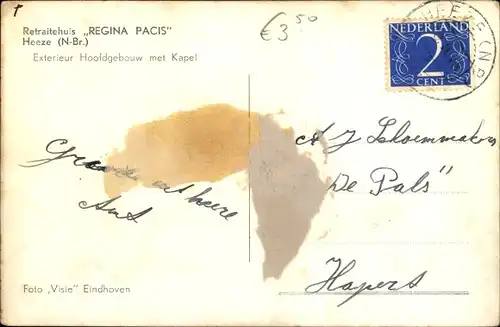 Retraitehuis „REGINA PACIS"
Heeze (N-Br.)
Exterieur Hoofdgebouw met Kapel
€3,50
HEEZE (N.B.)
NEDERLAND
2
CENT
uit heeze
A J Schoenmakers
"De Pals"
Hapert
Foto „Visie" Eindhoven